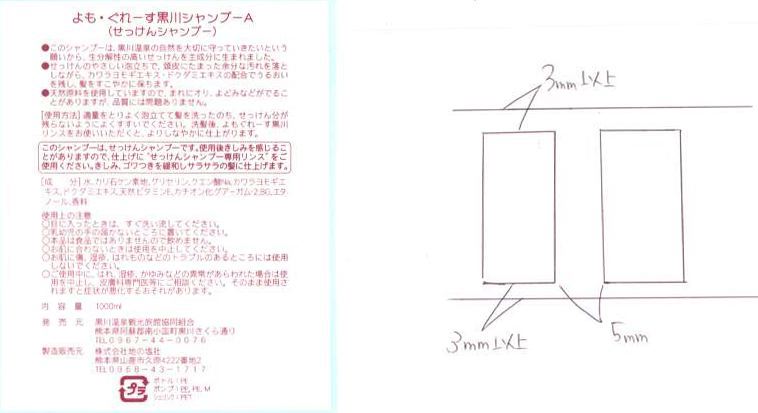 よも・ぐれーす黒川シャンプーA
（せっけんシャンプー）
●このシャンプーは、黒川温泉の自然を大切に守っていきたいという
願いから、生分解性の高いせっけんを主成分に生まれました。
●せっけんのやさしい泡立ちで、頭皮にたまった余分な汚れを落と
しながら、カワラヨモギエキス・ドクダミエキスの配合でうるおい
を残し、髪をすこやかに保ちます。
●天然原料を使用していますので、まれにオリ、よどみなどがでるこ
とがありますが、品質には問題ありません。
[使用方法] 適量をとりよく泡立てて髪を洗ったのち、せっけん分が
残らないようによくすすいでください。洗髪後、よもぐれーす黒川
リンスをお使いいただくと、よりしなやかに仕上がります。
このシャンプーは、せっけんシャンプーです。使用後きしみを感じるこ
とがありますので、仕上げに“せっけんシャンプー専用リンス”をご
使用ください。きしみ、ゴワつきを緩和しサラサラの髪に仕上げます。
[成　分] 水、カリ石ケン素地、グリセリン、クエン酸Na、カワラヨモギエ
キス、ドクダミエキス、天然ビタミンE、カチオン化グアーガム-2、BG、エタ
ノール、香料
使用上の注意
○目に入ったときは、すぐ洗い流してください。
○乳幼児の手の届かないところに置いてください。
○本品は食品ではありませんので飲めません。
○お肌に合わないときは使用を中止してください。
○お肌に傷、湿疹、はれものなどのトラブルのあるところには使用
しないでください。
○ご使用中に、はれ、湿疹、かゆみなどの異常があらわれた場合は使
用を中止し、皮膚科専門医等にご相談ください。そのまま使用され
ますと症状が悪化するおそれがあります。
内 容 量　1000ml
発 売 元　黒川温泉観光旅館協同組合
熊本県阿蘇郡南小国町黒川さくら通り
TEL0967-44-0076
製造販売元　株式会社地の塩社
熊本県山鹿市久原4222番地2
TEL0968-43-1717
プラ
ボトル：PE
ポンプ：PP, PE, M
シュリンク：PET
3mm以上
3mm以上
5mm